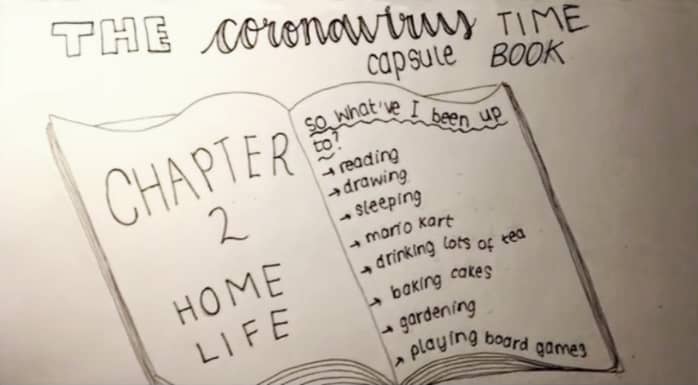 THE coronavirus TIME
capsule BOOK
CHAPTER
2
HOME
LIFE
so what've I been up
to?
→ reading
→ drawing
→ sleeping
→ mario kart
→ drinking lots of tea
→ baking cakes
→ gardening
→ playing board games